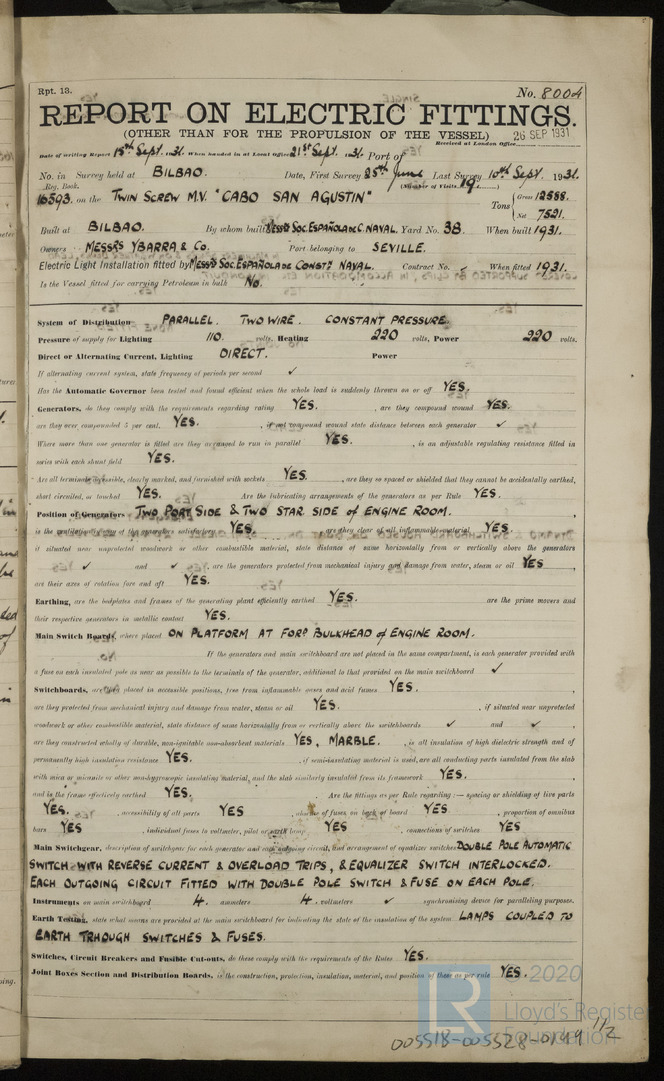 Rpt. 13.
No. 8004
REPORT ON ELECTRIC FITTINGS.
(OTHER THAN FOR THE PROPULSION OF THE VESSEL)
26 SEP 1931
Received at London Office
Date of writing Report 18th Sept. 1931. When handed in at Local Office 21st Sept. 1931 Port of
No. in Survey held at BILBAO. Date, First Survey 25th June Last Survey 10th Sept. 1931.
Reg. Book. (Number of Visits 19)
16593. on the TWIN SCREW M.V. "CABO SAN AGUSTIN" Tons { Gross 12588.
Net 7521.
Built at BILBAO. By whom built Messrs Soc. Española de C. Naval. Yard No. 38. When built 1931.
Owners MESSRS YBARRA & Co. Port belonging to SEVILLE.
Electric Light Installation fitted by Messrs Soc. Española de Constn Naval. Contract No. - When fitted 1931.
Is the Vessel fitted for carrying Petroleum in bulk No.
System of Distribution PARALLEL. TWO WIRE. CONSTANT PRESSURE.
Pressure of supply for Lighting 110. volts, Heating 220 volts, Power 220 volts.
Direct or Alternating Current, Lighting DIRECT. Power
If alternating current system, state frequency of periods per second ✓
Has the Automatic Governor been tested and found efficient when the whole load is suddenly thrown on or off YES.
Generators, do they comply with the requirements regarding rating YES. , are they compound wound YES.
are they over compounded 5 per cent. YES. , if not compound wound state distance between each generator ✓
Where more than one generator is fitted are they arranged to run in parallel YES. , is an adjustable regulating resistance fitted in
series with each shunt field YES.
Are all terminals accessible, clearly marked, and furnished with sockets YES. , are they so spaced or shielded that they cannot be accidentally earthed,
short circuited, or touched YES. Are the lubricating arrangements of the generators as per Rule YES.
Position of Generators TWO PORT SIDE & TWO STAR SIDE of ENGINE ROOM.
is the ventilation in way of the generators satisfactory YES. , are they clear of all inflammable material YES.
if situated near unprotected woodwork or other combustible material, state distance of same horizontally from or vertically above the generators
✓ and ✓ , are the generators protected from mechanical injury and damage from water, steam or oil YES ,
are their axes of rotation fore and aft YES.
Earthing, are the bedplates and frames of the generating plant efficiently earthed YES. are the prime movers and
their respective generators in metallic contact YES.
Main Switch Boards, where placed ON PLATFORM AT FORD BULKHEAD of ENGINE ROOM.
If the generators and main switchboard are not placed in the same compartment, is each generator provided with
a fuse on each insulated pole as near as possible to the terminals of the generator, additional to that provided on the main switchboard ✓
Switchboards, are they placed in accessible positions, free from inflammable gases and acid fumes YES. ,
are they protected from mechanical injury and damage from water, steam or oil YES. , if situated near unprotected
woodwork or other combustible material, state distance of same horizontally from or vertically above the switchboards ✓ and ✓ ,
are they constructed wholly of durable, non-ignitable non-absorbent materials YES, MARBLE. , is all insulation of high dielectric strength and of
permanently high insulation resistance YES. , if semi-insulating material is used, are all conducting parts insulated from the slab
with mica or micanite or other non-hygroscopic insulating material, and the slab similarly insulated from its framework YES. ,
and is the frame effectively earthed YES. Are the fittings as per Rule regarding:— spacing or shielding of live parts
YES. , accessibility of all parts YES , absence of fuses on back of board YES , proportion of omnibus
bars YES , individual fuses to voltmeter, pilot or earth lamp YES , connections of switches YES
Main Switchgear, description of switchgear for each generator and each outgoing circuit, and arrangement of equalizer switches DOUBLE POLE AUTOMATIC
SWITCH WITH REVERSE CURRENT & OVERLOAD TRIPS, & EQUALIZER SWITCH INTERLOCKED.
EACH OUTGOING CIRCUIT FITTED WITH DOUBLE POLE SWITCH & FUSE ON EACH POLE.
Instruments on main switchboard 4. ammeters 4. voltmeters ✓ synchronising device for paralleling purposes.
Earth Testing, state what means are provided at the main switchboard for indicating the state of the insulation of the system LAMPS COUPLED TO
EARTH TRHOUGH SWITCHES & FUSES.
Switches, Circuit Breakers and Fusible Cut-outs, do these comply with the requirements of the Rules YES.
Joint Boxes Section and Distribution Boards, is the construction, protection, insulation, material, and position of these as per rule YES.
© 2020
LR
Lloyd's Register
Foundation
005518-005528-0149 1/2